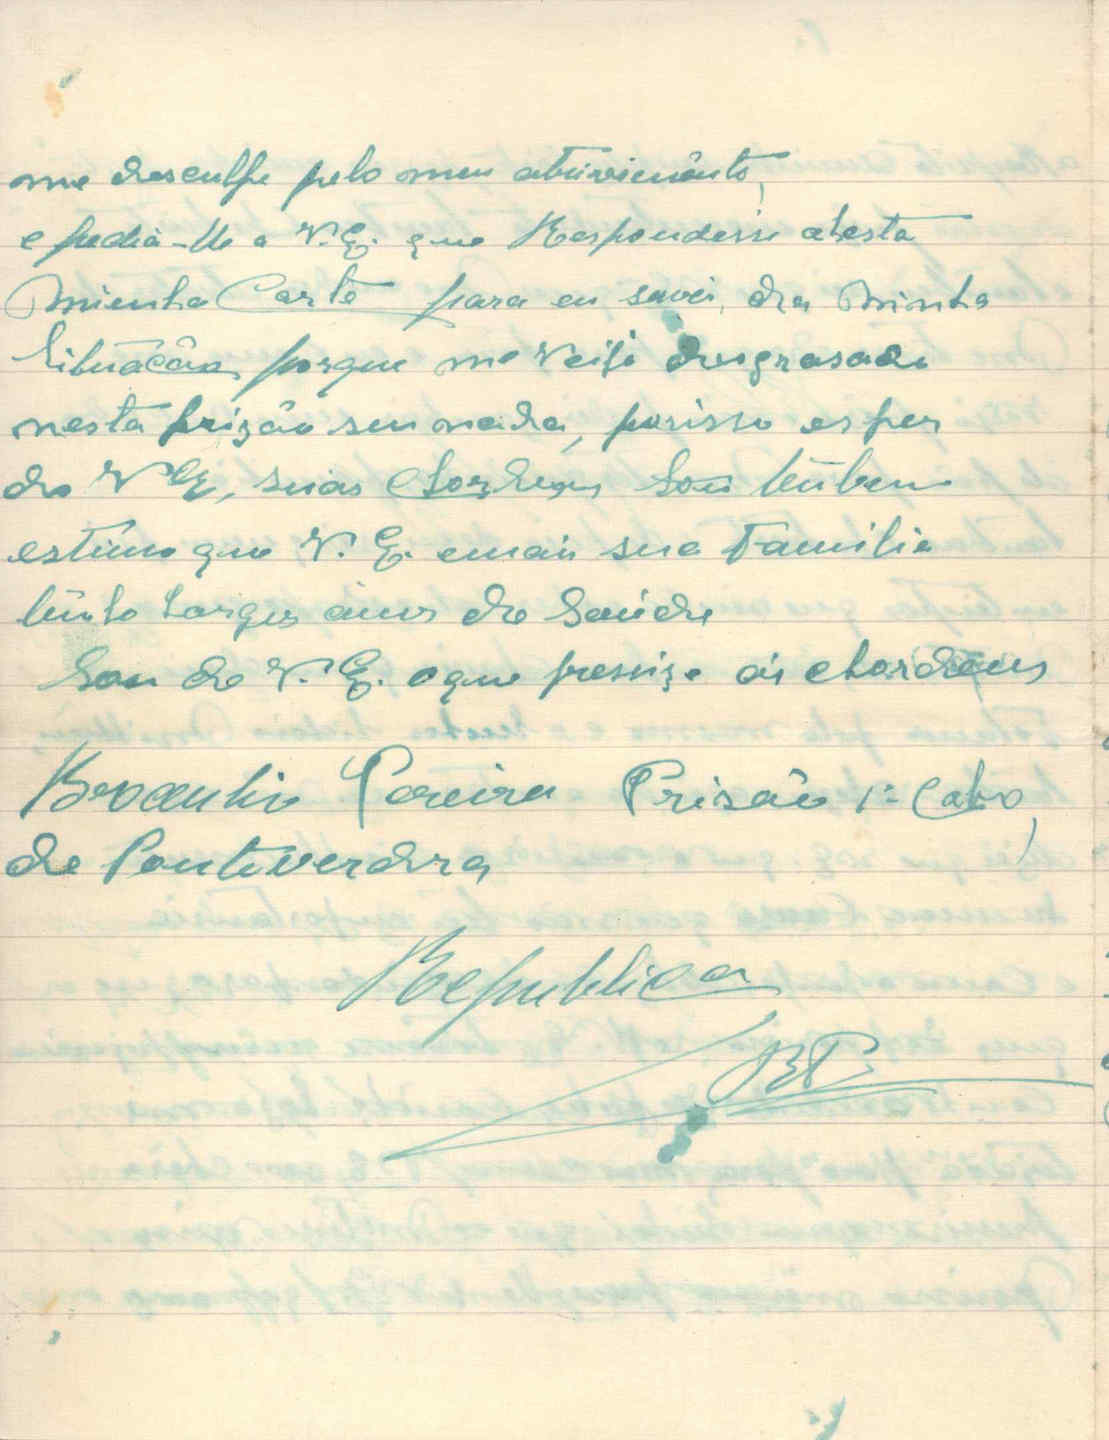 me desculpe pelo meu atrivimênto,
e pedia-lle a V. E. que Respondesi a esta
Mienha Carta para eu saver, da Minha
Situacâon porque me Veijo desgrasado
nesta prizâo seu nada, porisso esper
do V E, suas Hordens Sou tênben
estimo que V. E. emais sua Familia
tênto largos ânos de Saúde
Sou de V. E. o que presizo ás ehordens
Braculio Pereira Prizâo 1º Cabo,
de Ponteverdra
Republica
BP